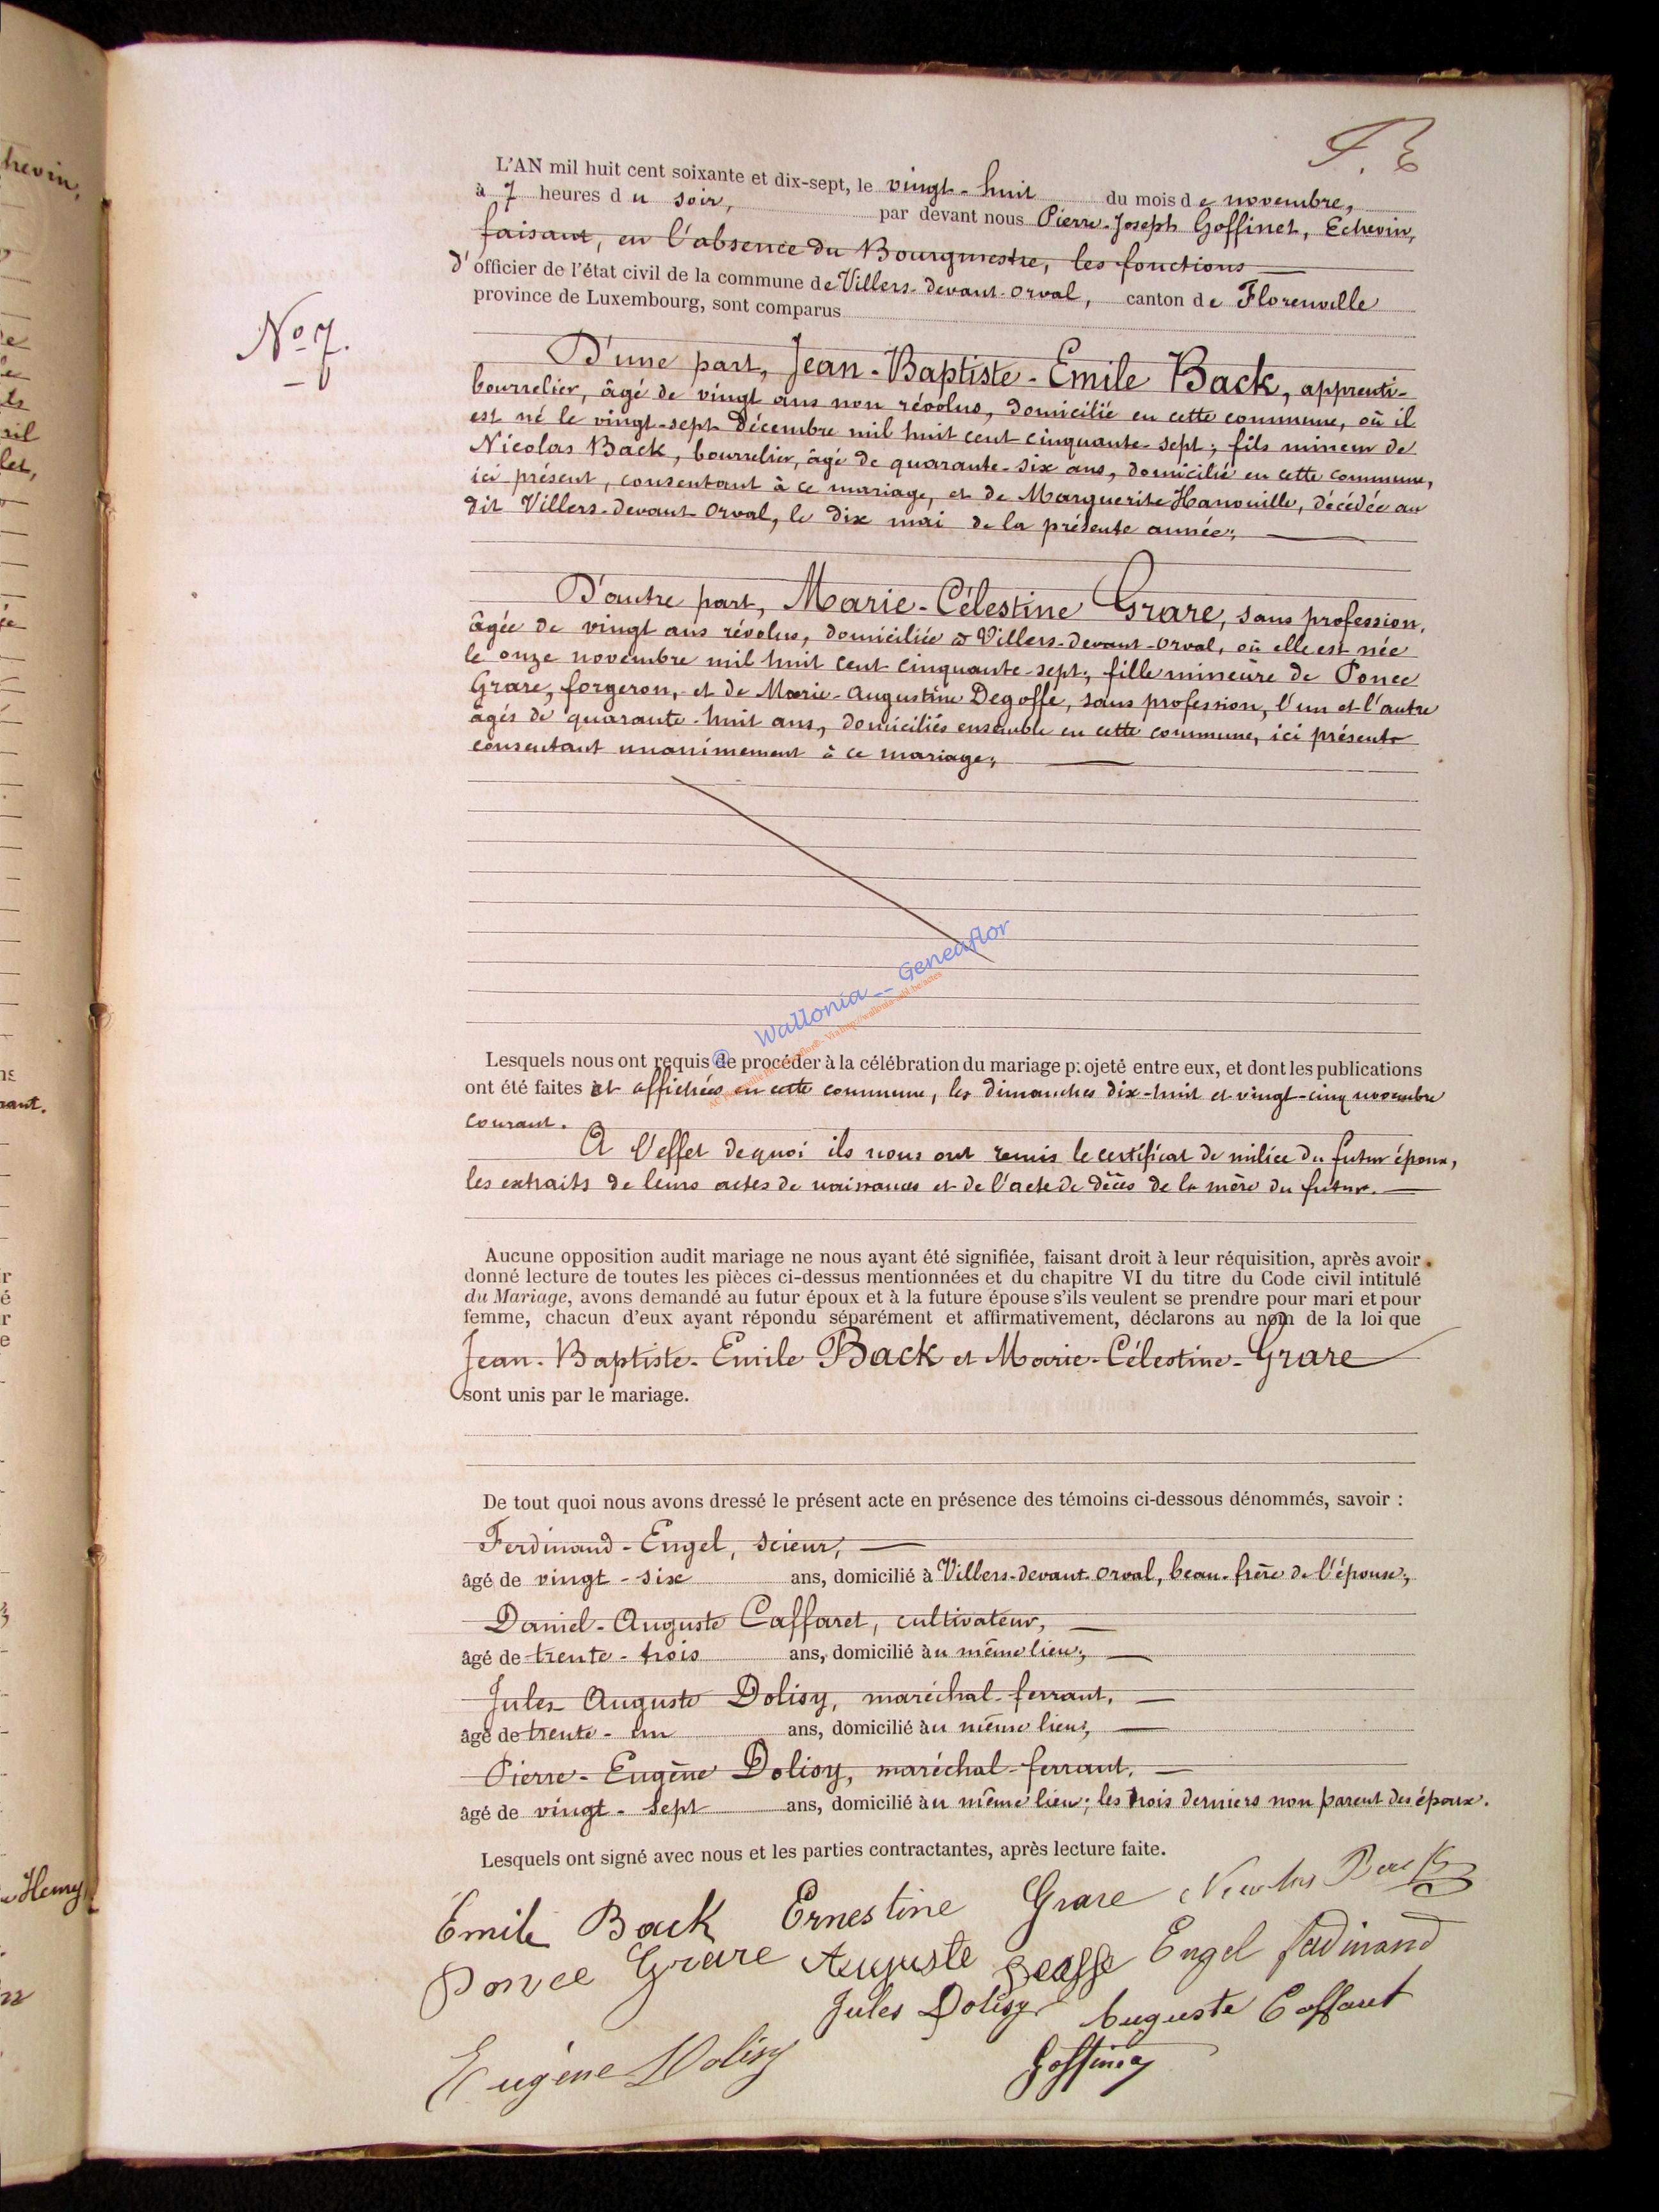 hevin,
L'AN mil huit cent soixante et dix-sept, le vingt-huit du mois de novembre,
à 7 heures du soir, par devant nous Pierre-Joseph Goffinet, Echevin,
faisant, en l'absence du Bourgmestre, les fonctions
d'officier de l'état civil de la commune de Villers-devant-Orval, canton de Florenville
province de Luxembourg, sont comparus
No 7.
D'une part, Jean-Baptiste-Emile Back, apprenti-
bourrelier, âgé de vingt ans non révolus, domicilié en cette commune, où il
est né le vingt-sept Décembre mil huit cent cinquante-sept; fils mineur de
Nicolas Back, bourrelier, âgé de quarante-six ans, domicilié en cette commune,
ici présent, consentant à ce mariage, et de Marguerite Hanouille, décédée au
dit Villers-devant-Orval, le dix mai de la présente année;
D'autre part, Marie-Célestine Grare, sans profession,
âgée de vingt ans révolus, domiciliée à Villers-devant-Orval, où elle est née
le onze novembre mil huit cent cinquante-sept; fille mineure de Ponce
Grare, forgeron, et de Marie-Augustine Degoffe, sans profession, l'un et l'autre
âgés de quarante-huit ans, domiciliés ensemble en cette commune, ici présents
consentant unanimement à ce mariage;
© Wallonia -- Geneaflor
Lesquels nous ont requis de procéder à la célébration du mariage projeté entre eux, et dont les publications
ont été faites et affichées en cette commune, les dimanches dix-huit et vingt-cinq novembre
courant.
A l'effet de quoi ils nous ont remis le certificat de milice du futur époux,
les extraits de leurs actes de naissances et de l'acte de décès de la mère du futur.
Aucune opposition audit mariage ne nous ayant été signifiée, faisant droit à leur réquisition, après avoir
donné lecture de toutes les pièces ci-dessus mentionnées et du chapitre VI du titre du Code civil intitulé
du Mariage, avons demandé au futur époux et à la future épouse s'ils veulent se prendre pour mari et pour
femme, chacun d'eux ayant répondu séparément et affirmativement, déclarons au nom de la loi que
Jean-Baptiste-Emile Back et Marie-Célestine-Grare
sont unis par le mariage.
De tout quoi nous avons dressé le présent acte en présence des témoins ci-dessous dénommés, savoir :
Ferdinand-Engel, scieur,
âgé de vingt-six ans, domicilié à Villers-devant-Orval, beau-frère de l'épouse;
Daniel-Auguste Caffaret, cultivateur,
âgé de trente-trois ans, domicilié au même lieu;
Jules-Auguste Dolisy, maréchal-ferrant,
âgé de trente-un ans, domicilié au même lieu;
Pierre-Eugène Dolisy, maréchal-ferrant,
âgé de vingt-sept ans, domicilié au même lieu; les trois derniers non parent des époux.
Lesquels ont signé avec nous et les parties contractantes, après lecture faite.
Emile Back Ernestine Grare Nicolas Back
Ponce Grare Auguste Engel ferdinand
Jules Dolisy Auguste Caffaret
Eugène Dolisy Goffinet